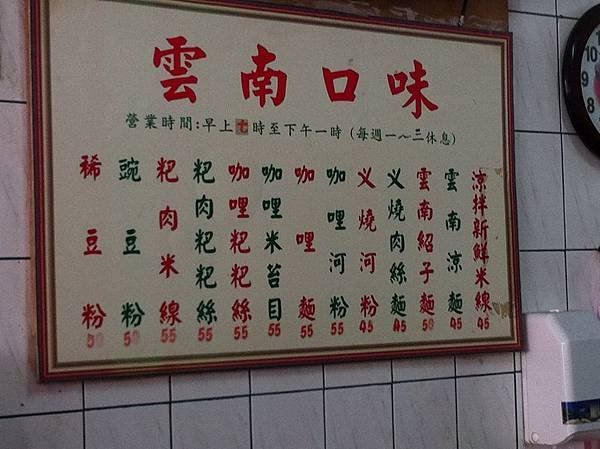 雲南口味
營業時間:早上七時至下午一時 (每週一~三休息)
涼拌新鮮米線 45
雲南涼麵 45
雲南紹子麵 50
义燒肉絲麵 45
义燒河粉 45
咖哩河粉 55
咖哩麵 55
咖哩米苔目 55
咖哩粑粑絲 55
粑肉粑粑絲 55
粑肉米線 55
豌豆粉 50
稀豆粉 50
9
8